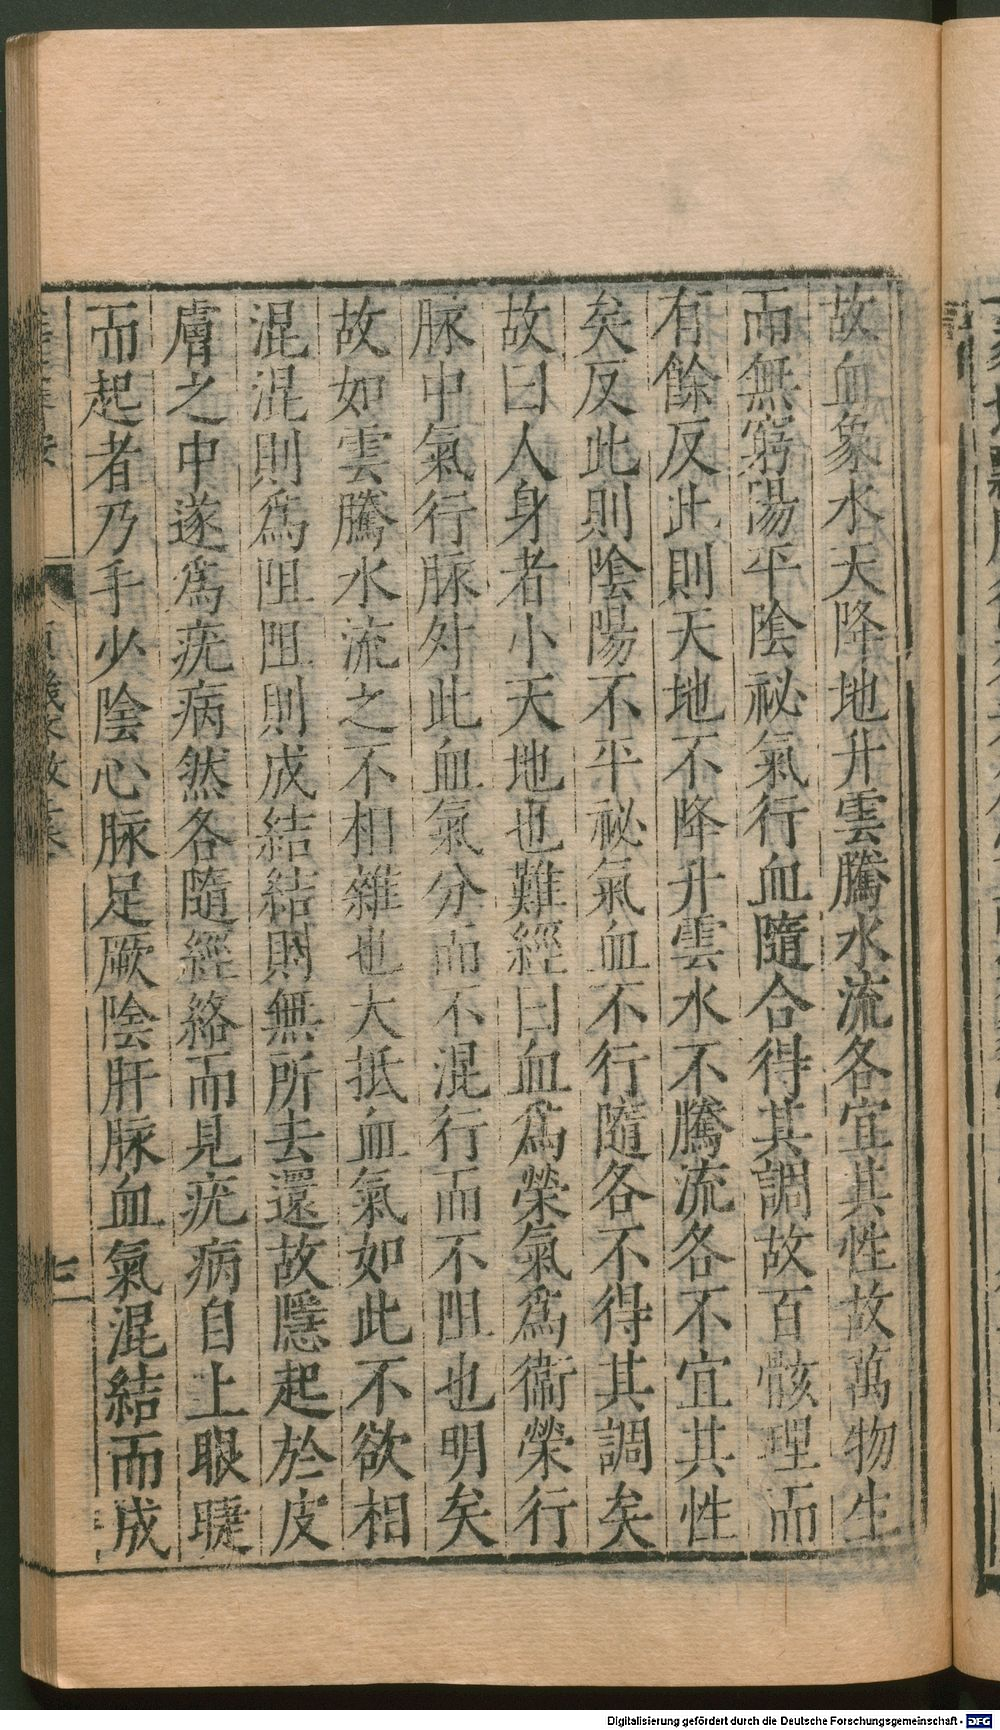 故血象水天降地升雲騰水流各宜其性故萬物生
而無窮陽平陰祕氣行血隨合得其調故百骸理而
有餘反此則天地不降升雲水不騰流各不宜其性
矣反此則陰陽不平祕氣血不行隨各不得其調矣
故曰人身者小天地也難經曰血爲榮氣爲衞榮行
脉中氣行脉外此血氣分而不混行而不阻也明矣
故如雲騰水流之不相雜也大抵血氣如此不欲相
混混則爲阻阻則成結結則無所去還故隱起於皮
膚之中遂爲疣病然各隨經絡而見疣病自上眼睫
而起者乃手少陰心脉足厥陰肝脉血氣混結而成
Digitalisierung gefördert durch die Deutsche Forschungsgemeinschaft - DFG